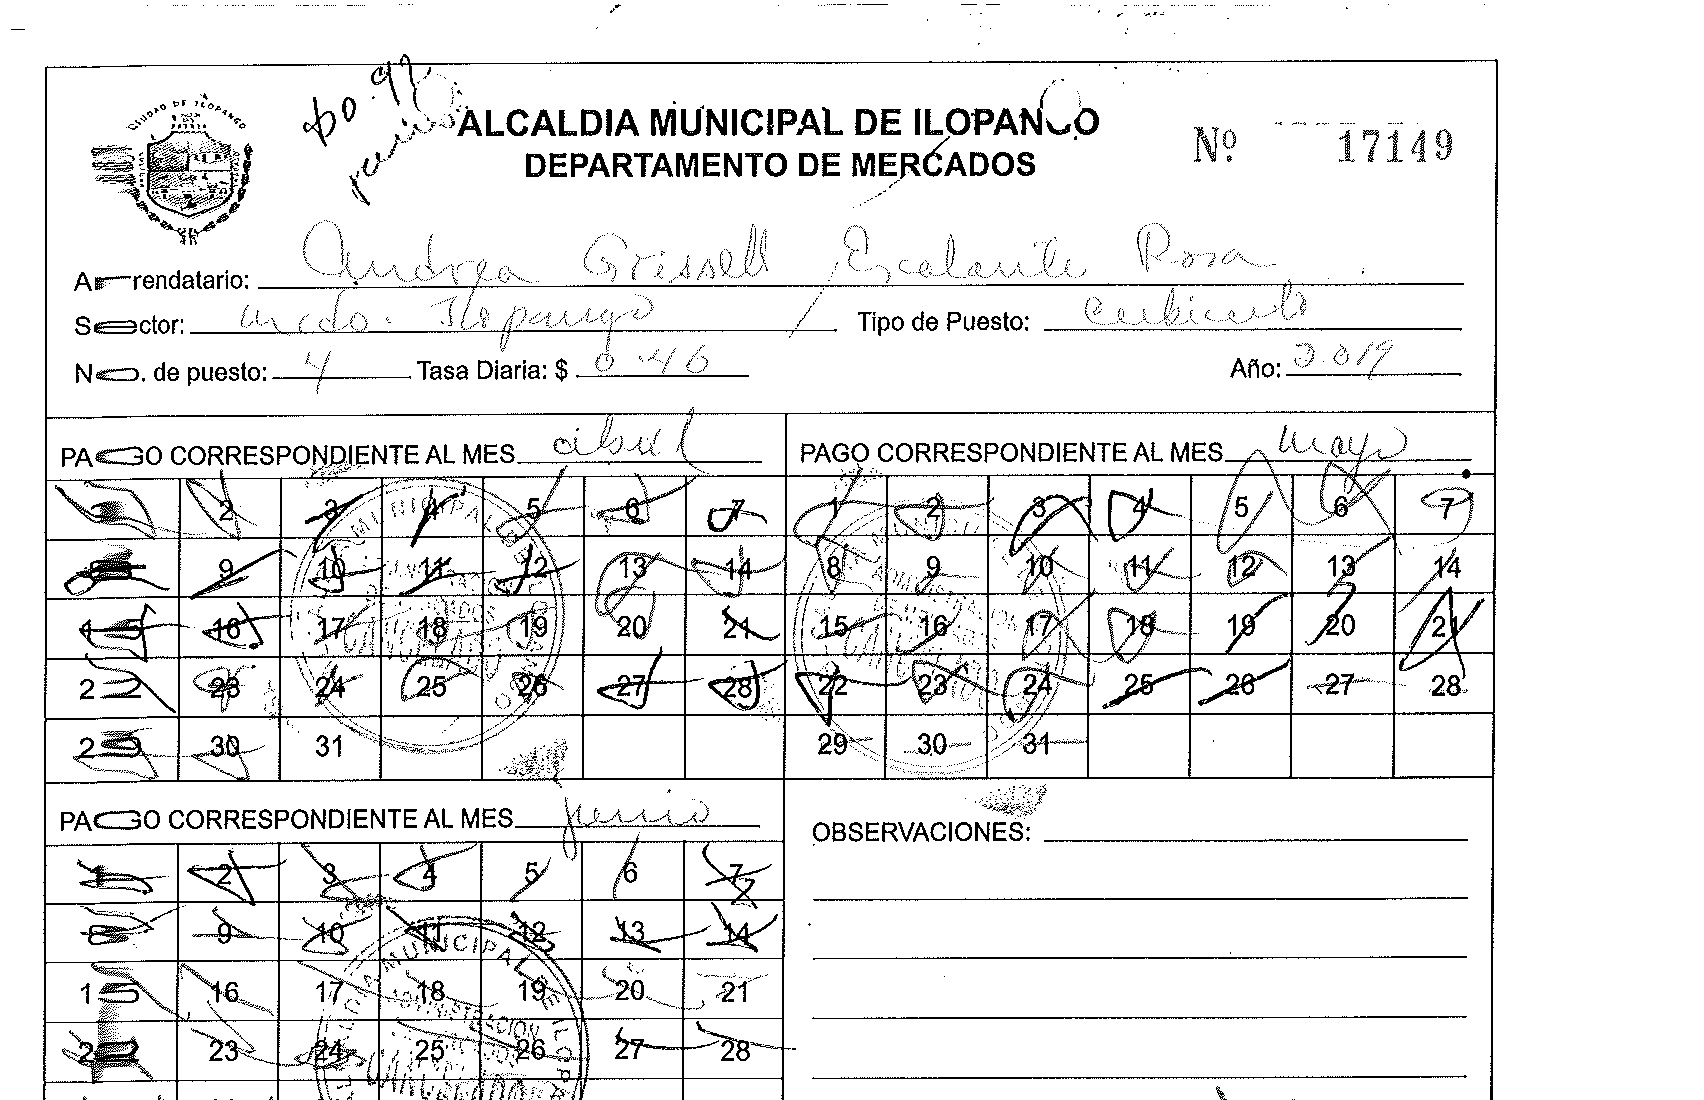 CIUDAD DE ILOPANGO
ALCALDIA MUNICIPAL DE ILOPANGO
DEPARTAMENTO DE MERCADOS
Nº 17149
Arrendatario: Andrea Grissell Escalante Rosa
Sector: Mcdo. Ilopango Tipo de Puesto: Cubiculo
No. de puesto: 4 Tasa Diaria: $ 0.46 Año: 2019
PAGO CORRESPONDIENTE AL MES abril
1 2 3 4 5 6 7
8 9 10 11 12 13 14
15 16 17 18 19 20 21
22 23 24 25 26 27 28
29 30 31
PAGO CORRESPONDIENTE AL MES mayo
1 2 3 4 5 6 7
8 9 10 11 12 13 14
15 16 17 18 19 20 21
22 23 24 25 26 27 28
29 30 31
PAGO CORRESPONDIENTE AL MES junio
1 2 3 4 5 6 7
8 9 10 11 12 13 14
15 16 17 18 19 20 21
22 23 24 25 26 27 28
OBSERVACIONES: